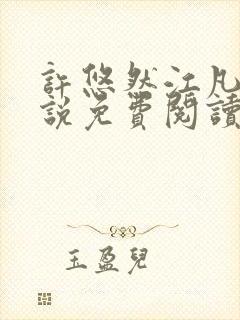 許悠然江凡
說免費閱讀
玉盈兒